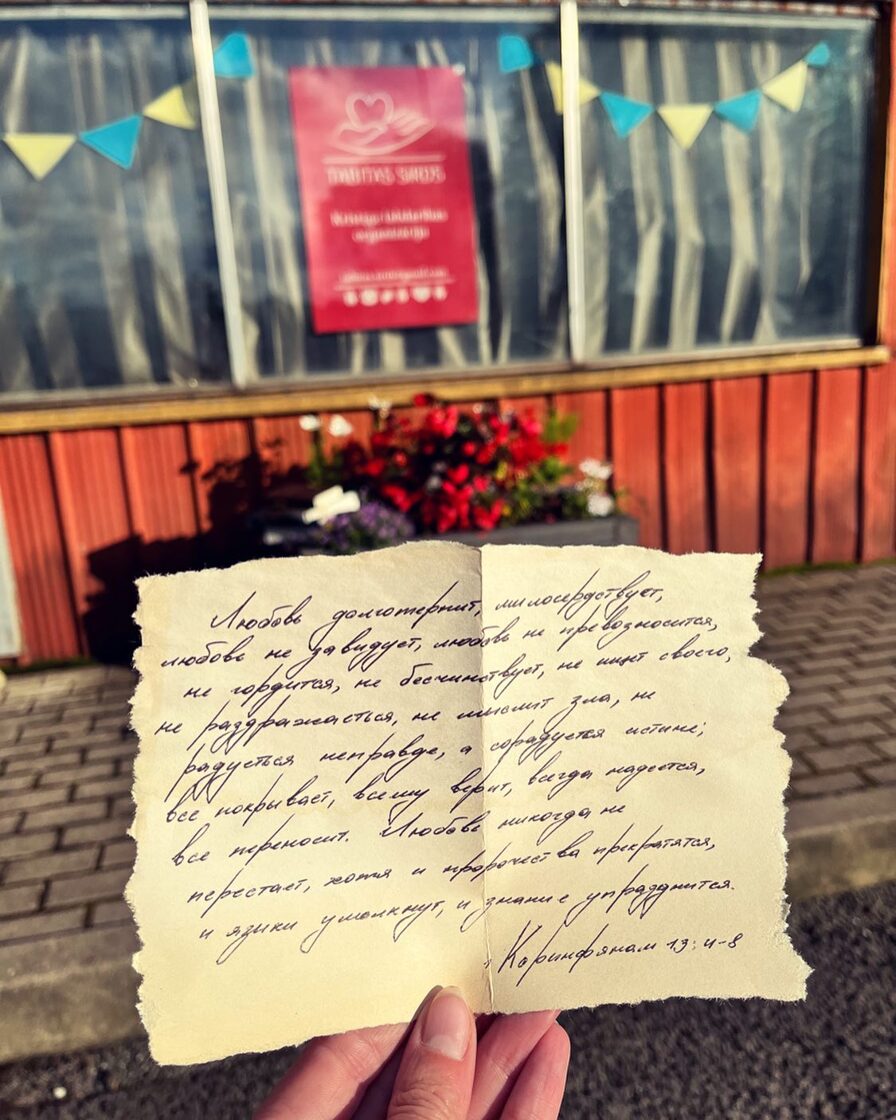 TABITAS SIRDS
Kristīga labdarības
organizācija
Любовь долготерпит, милосердствует,
любовь не завидует, любовь не превозносится,
не гордится, не бесчинствует, не ищет своего,
не раздражается, не мыслит зла, не
радуется неправде, а сорадуется истине;
все покрывает, всему верит, всегда надеется,
все переносит. Любовь никогда не
перестает, хотя и пророчества прекратятся,
и языки умолкнут, и знание упразднится.
Коринфянам 13:4-8